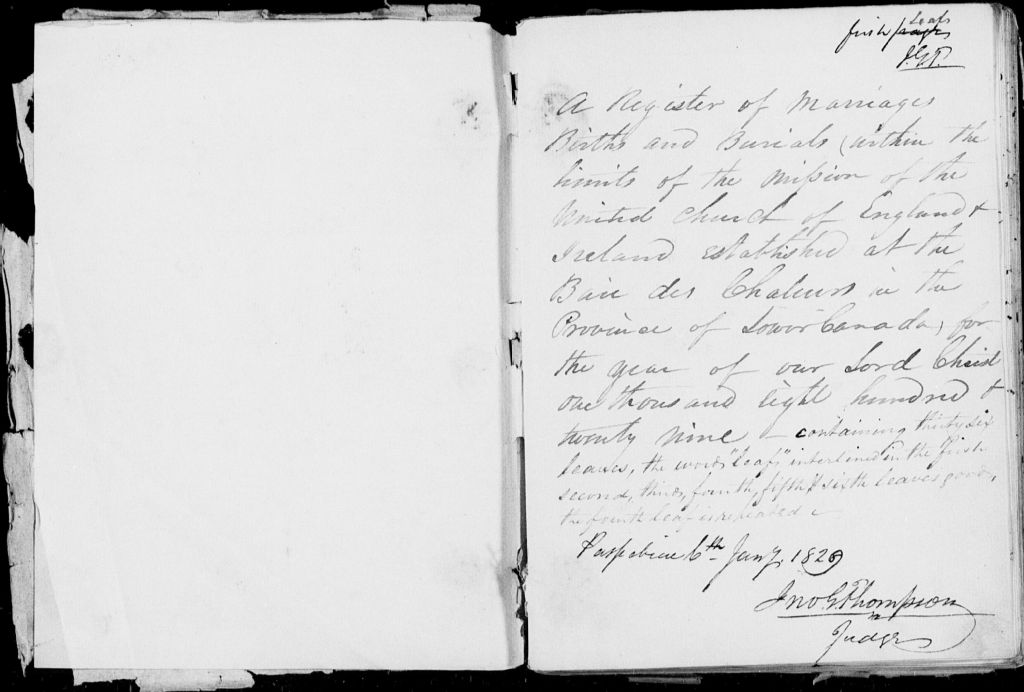 Leafs
first pages
J.G.T.
A Register of Marriages
Births and Burials (within the
limits of the Mission of the
United Church of England &
Ireland established at the
Baie des Chaleurs in the
Province of Lower Canada, for
the year of our Lord Christ
one thousand eight hundred &
twenty nine – containing thirty six
leaves, the words "leaf," interlined in the first
second, third, fourth, fifth & sixth leaves good,
the fourth leaf is repeated
Paspebiac 6th Jany. 1829
Jno G Thompson
Judge